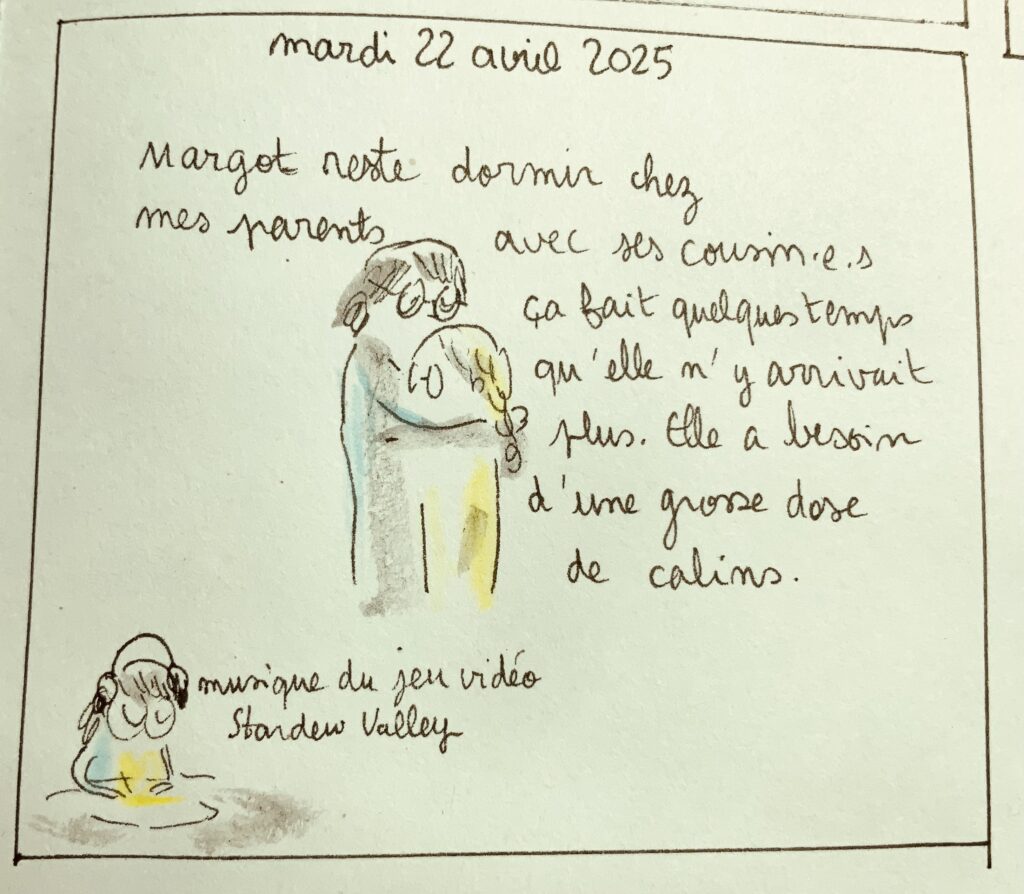 mardi 22 avril 2025
Margot reste dormir chez
mes parents avec ses cousin.e.s
ça fait quelques temps
qu'elle n'y arrivait
plus. Elle a besoin
d'une grosse dose
de calins.
musique du jeu vidéo
Stardew Valley